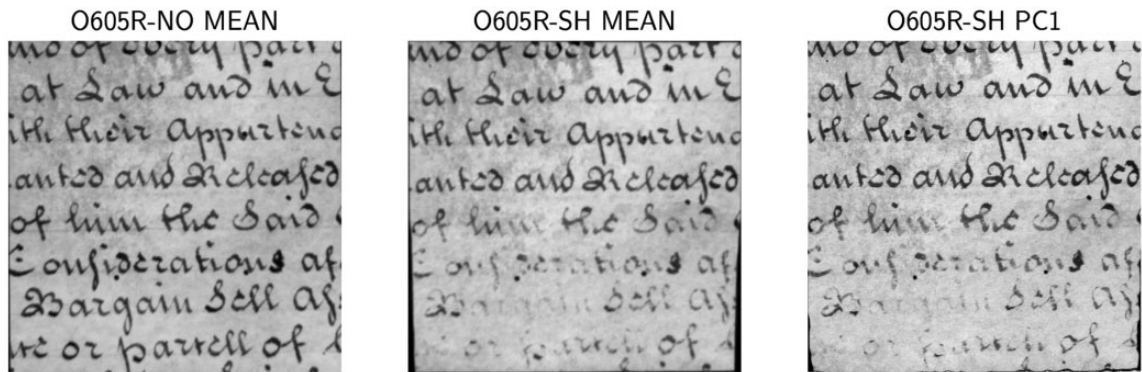 O605R-NO MEAN
and of every part
at Law and in E
ith their Appurtenc
anted and Releaſed
of him the Said
Conſiderations af
Bargain Sell Aſ
te or parcell of
O605R-SH MEAN
and of every part
at Law and in E
ith their Appurtena
anted and Releaſed
of him the Said
Conſiderations af
Bargain Sell Aſ
or parcell of
O605R-SH PC1
and of every part
at Law and in E
ith their Appurtena
anted and Releaſed
of him the Said
Conſiderations af
Bargain Sell Aſ
or parcell of